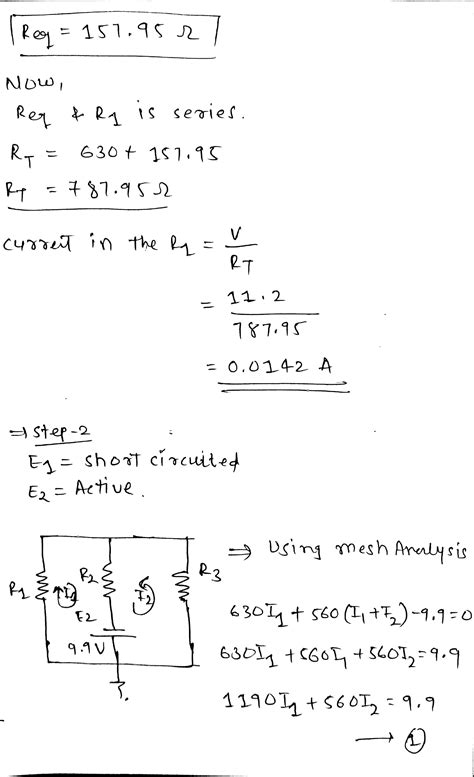 Req = 157.95 Ω
Now,
Req & R1 is series.
RT = 630 + 157.95
RT = 787.95 Ω
current in the R1 = V / RT
= 11.2 / 787.95
= 0.0142 A
⇒ Step-2
E1 = short circuited
E2 = Active.
⇒ Using mesh Analysis
R1 R2 R3
I1 I2
E2
9.9V
630I1 + 560(I1+I2)-9.9=0
630I1 + 560I1 + 560I2 = 9.9
1190I1 + 560I2 = 9.9
→ ①